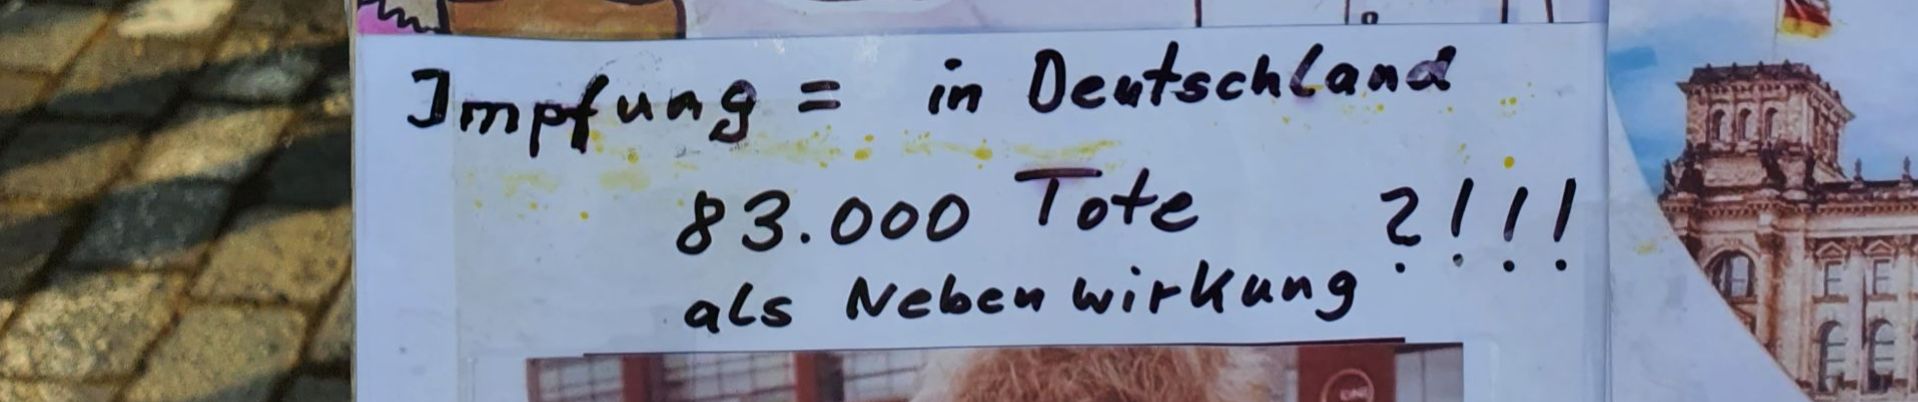 Impfung = in Deutschland
83.000 Tote ?!!!
als Nebenwirkung